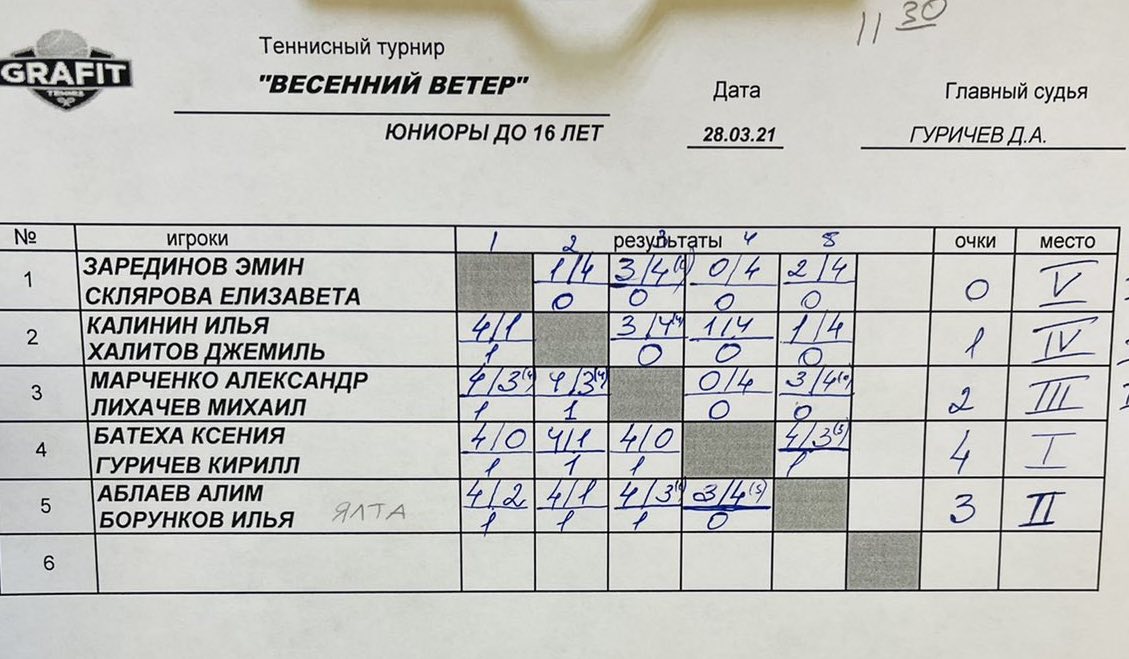 11 30
GRAFIT
TENNIS
Теннисный турнир
"ВЕСЕННИЙ ВЕТЕР"
ЮНИОРЫ ДО 16 ЛЕТ
Дата
28.03.21
Главный судья
ГУРИЧЕВ Д.А.
№ игроки результаты очки место
1 2 3 4 5
1 ЗАРЕДИНОВ ЭМИН 1/4 3/4 0/4 2/4
СКЛЯРОВА ЕЛИЗАВЕТА 0 0 0 0 0 V
2 КАЛИНИН ИЛЬЯ 4/1 3/4(4) 1/4 1/4
ХАЛИТОВ ДЖЕМИЛЬ 1 0 0 0 1 IV
3 МАРЧЕНКО АЛЕКСАНДР 4/3 4/3(4) 0/4 3/4
ЛИХАЧЕВ МИХАИЛ 1 1 0 0 2 III
4 БАТЕХА КСЕНИЯ 4/0 4/1 4/0 4/3(5)
ГУРИЧЕВ КИРИЛЛ 1 1 1 1 4 I
5 АБЛАЕВ АЛИМ 4/2 4/1 4/3 3/4(5)
БОРУНКОВ ИЛЬЯ ЯЛТА 1 1 1 0 3 II
6